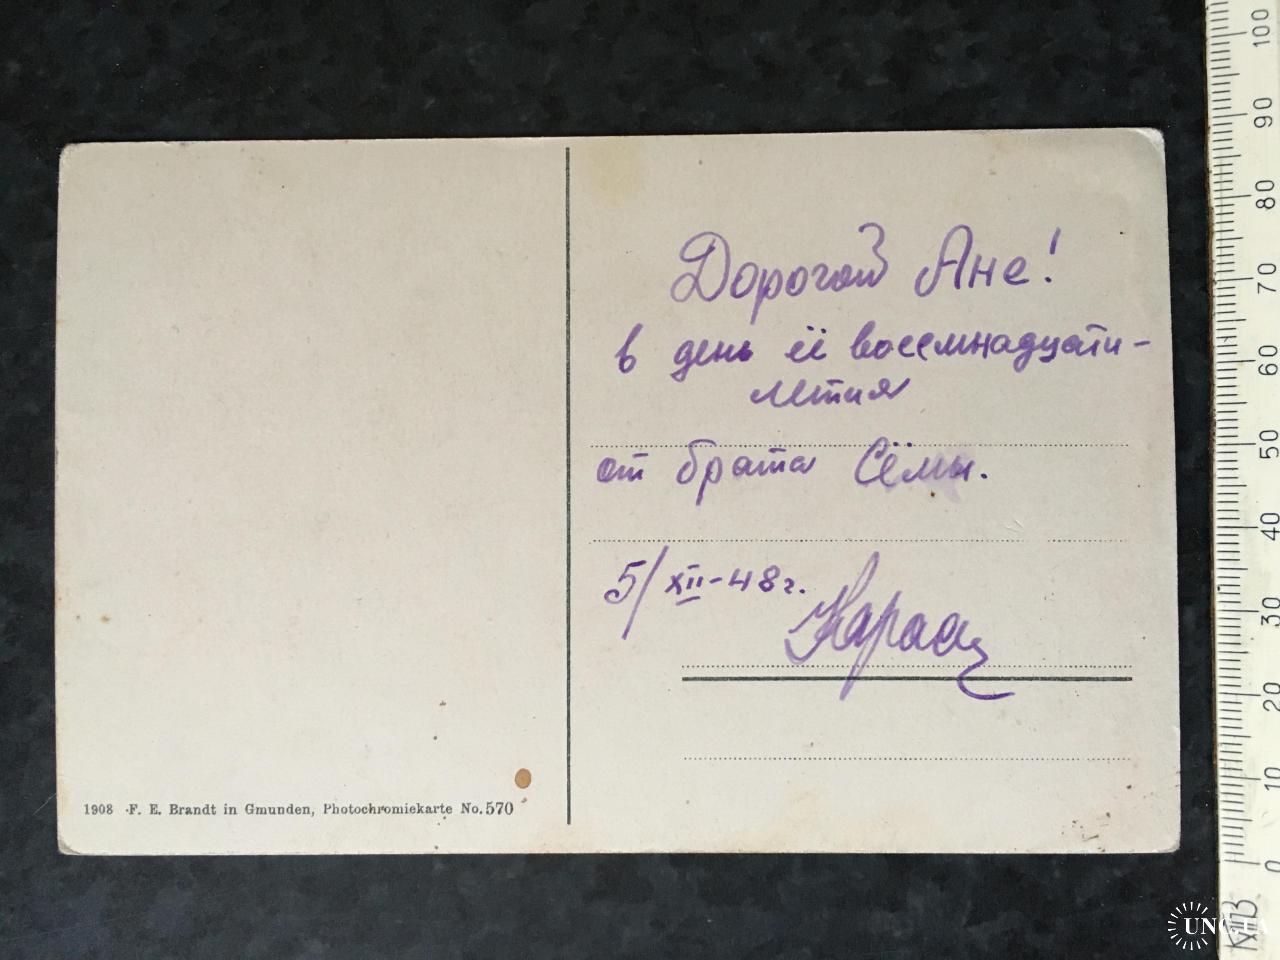 Дорогой Ане!
в день её восемнадцати-
летия
от брата Сёмы.
5/XII-48г.
1908 F. E. Brandt in Gmunden, Photochromiekarte No. 570
100
90
80
70
60
50
40
30
20
10
0